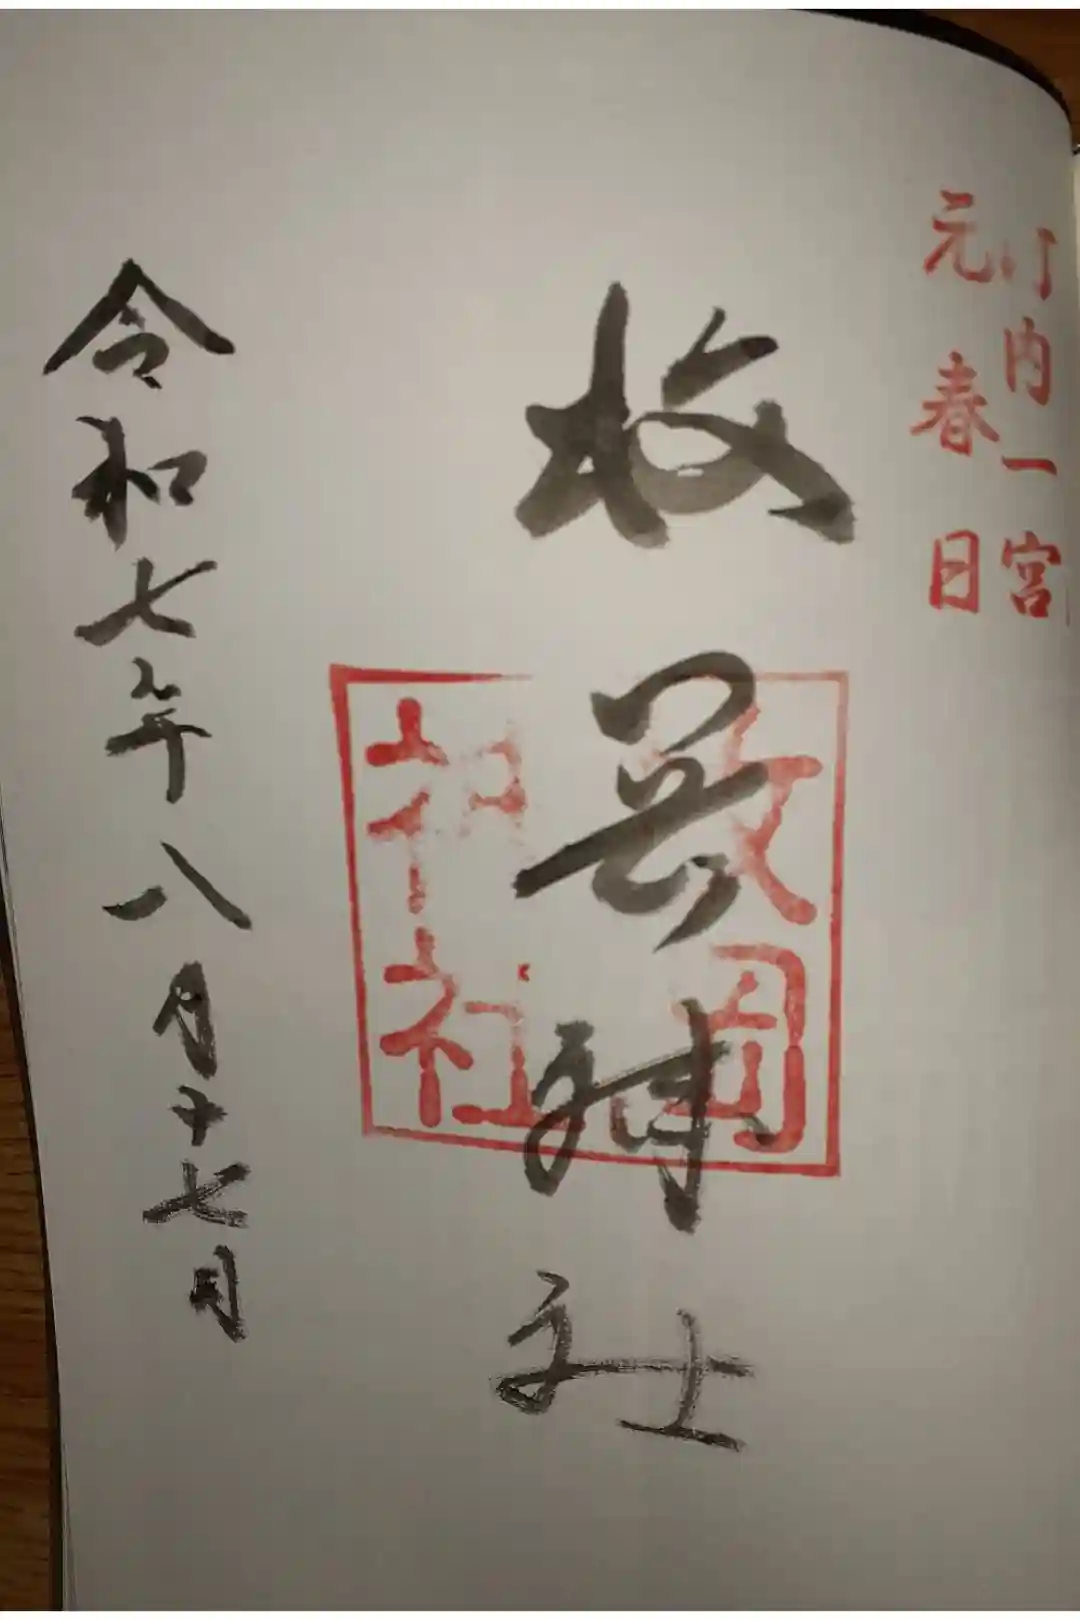 河内一宮
元春日
枚岡神社
枚岡神社
令和七年八月十七日